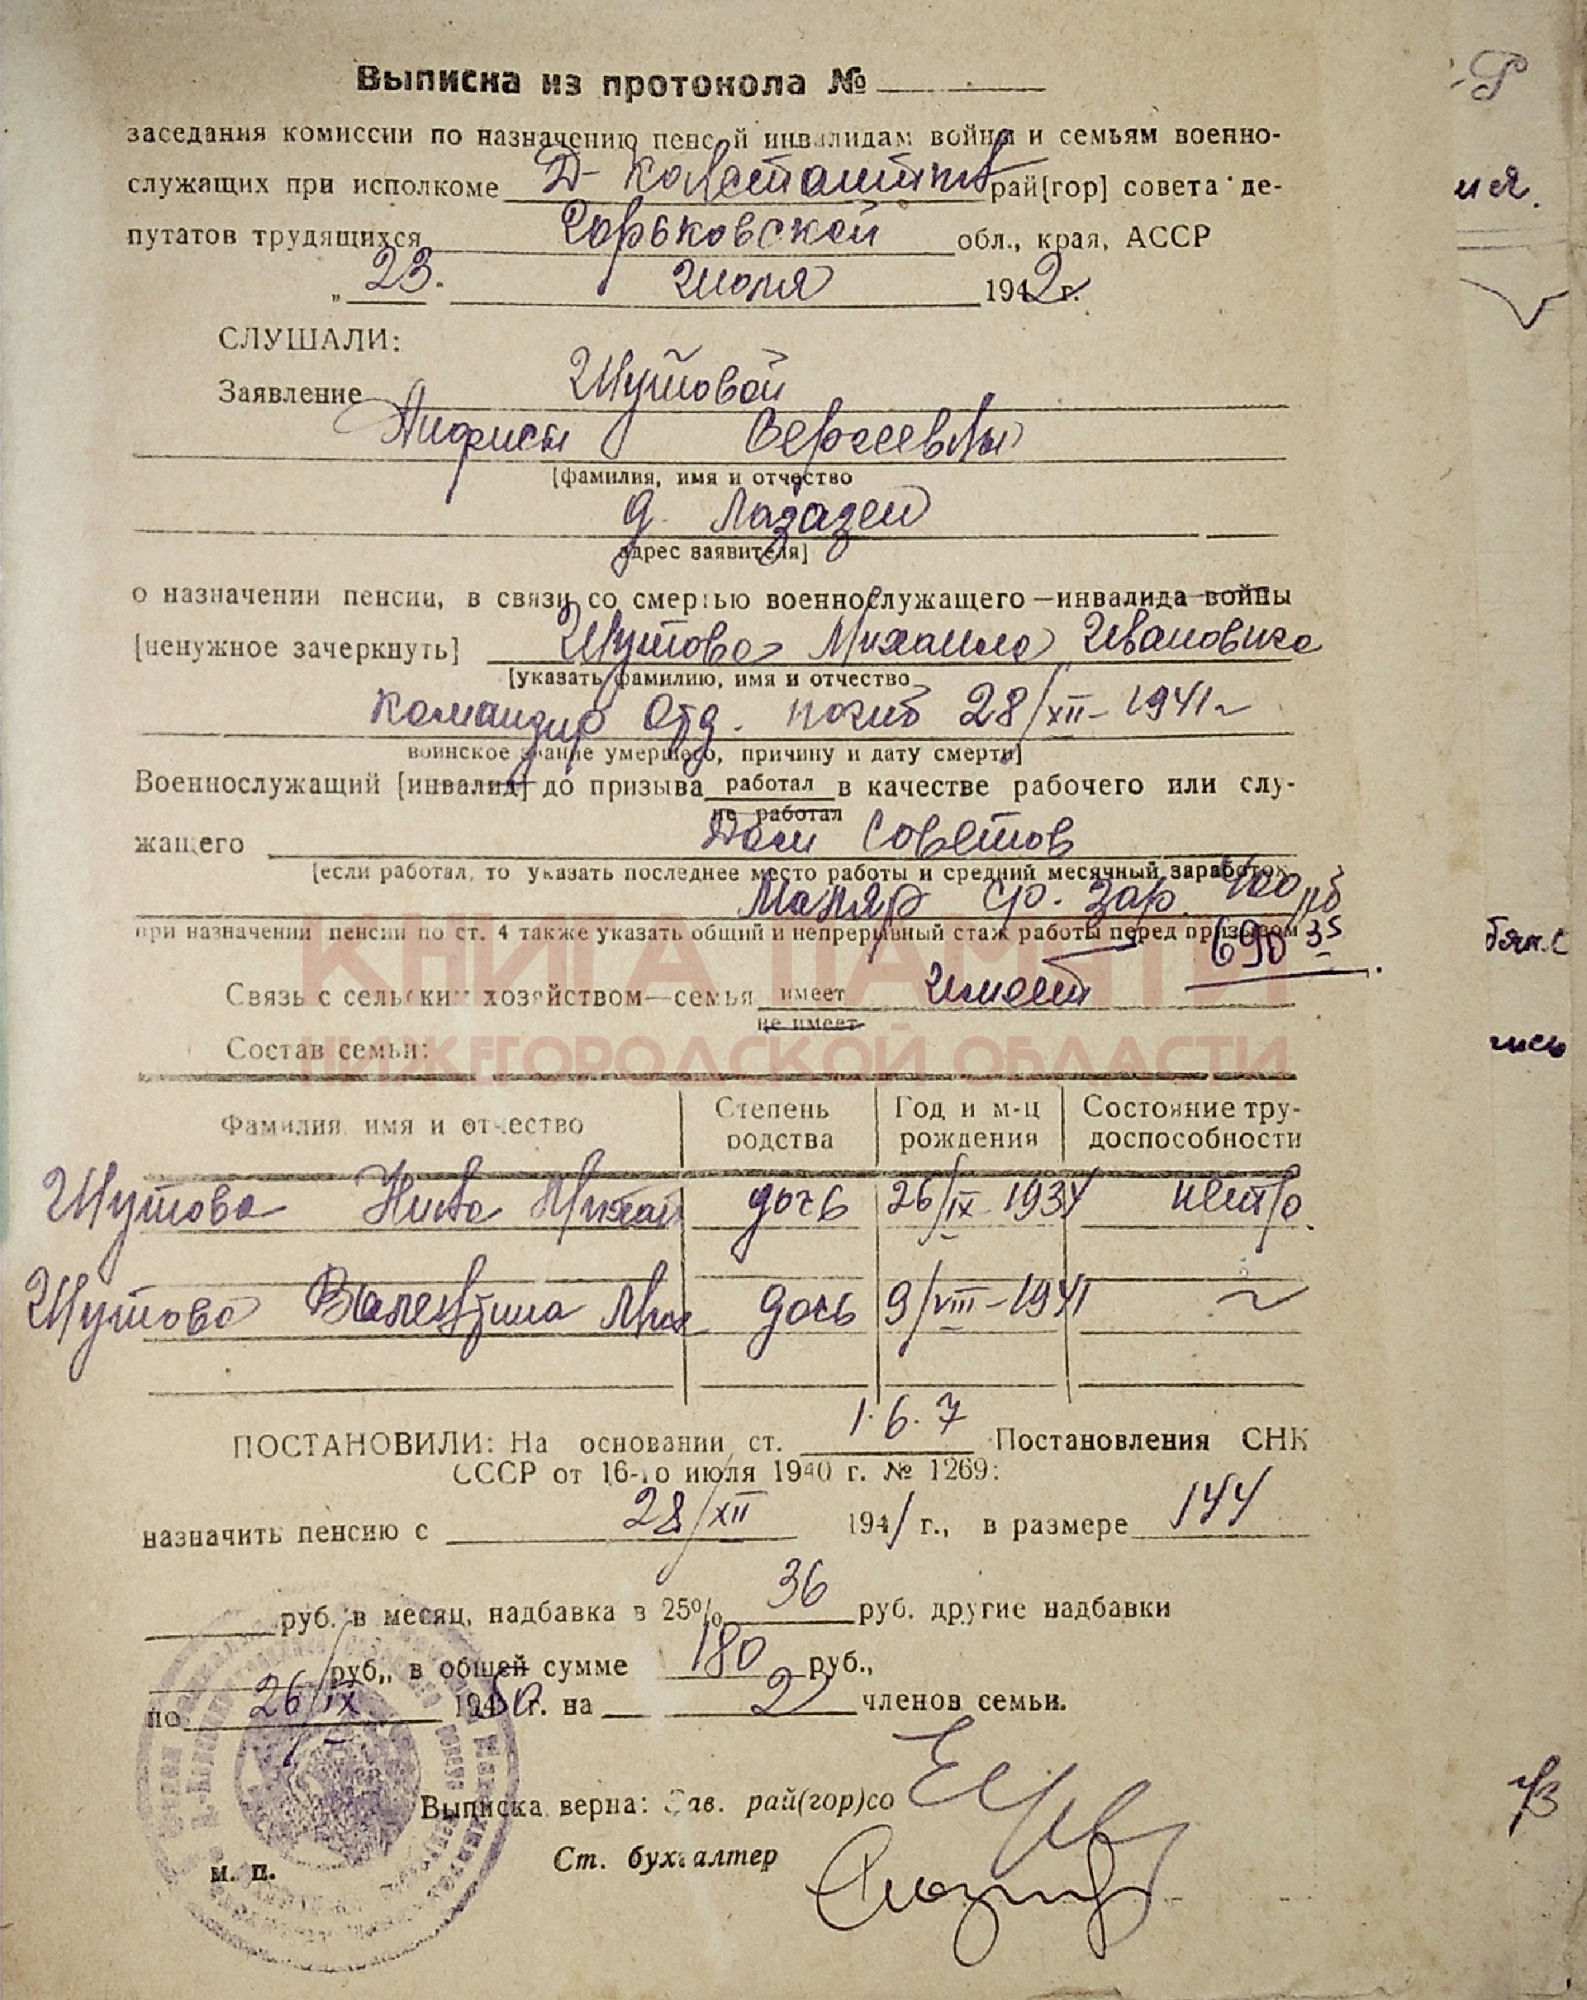 Выписка из протокола №
заседания комиссии по назначению пенсий инвалидам войны и семьям военно-
служащих при исполкоме Д-Константинов рай[гор] совета де-
путатов трудящихся Горьковской обл., края, АССР
„ 23. Июля 1942 г.
СЛУШАЛИ:
Заявление Шутовой
Анфисы Сергеевны
[фамилия, имя и отчество
д. Лазазей
адрес заявителя]
о назначении пенсии, в связи со смертью военнослужащего—инвалида войны
[ненужное зачеркнуть] Шутова Михаила Ивановича
[указать фамилию, имя и отчество
командир отд. погиб 28/XII-1941
воинское звание умершего, причину и дату смерти]
Военнослужащий [инвалид] до призыва работал в качестве рабочего или слу-
не работал
жащего Дом Советов
[если работал, то указать последнее место работы и средний месячный заработок
Маляр ср. зар. 400 рб
при назначении пенсии по ст. 4 также указать общий и непрерывный стаж работы перед призывом
690 35
Связь с сельским хозяйством—семья имеет Имеет
не имеет
КНИГА ПАМЯТИ
НИЖЕГОРОДСКОЙ ОБЛАСТИ
Состав семьи:
Фамилия, имя и отчество Степень родства Год и м-ц рождения Состояние тру-доспособности
Шутова Нина Михай дочь 26/IX-1934 нетр.
Шутова Валентина Мих дочь 9/VIII-1941 ~
ПОСТАНОВИЛИ: На основании ст. 1.6.7 Постановления СНК
СССР от 16-го июля 1940 г. № 1269:
назначить пенсию с 28/XII 1941 г., в размере 144
руб. в месяц, надбавка в 25% 36 руб. другие надбавки
руб., в общей сумме 180 руб.,
по 26/IX 1950 г. на 2 членов семьи.
Выписка верна: Зав. рай(гор)со
Ст. бухгалтер
м. п.